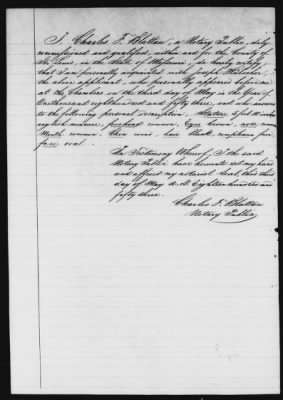 I, Charles F. Blattau, a Notary Public, duly
commissioned and qualified, within and for the County of
St. Louis, in the State of Missouri, do hereby certify,
that I am personally acquainted with Joseph
the above applicant, who personally appeared before me
at the Chambers on the third day of May in the Year of
One thousand eight hundred and fifty three, and who answers
to the following personal description. Stature 5 feet
english measure, forehead common, Eyes brown, nose
Mouth common, Chin round, hair black, complexion
face oval.
In Testimony Whereof, I the said
Notary Public have hereunto set my hand
and affixed my notarial Seal, this third
day of May A.D. Eighteen hundred and
fifty three.
Charles F. Blattau
Notary Public